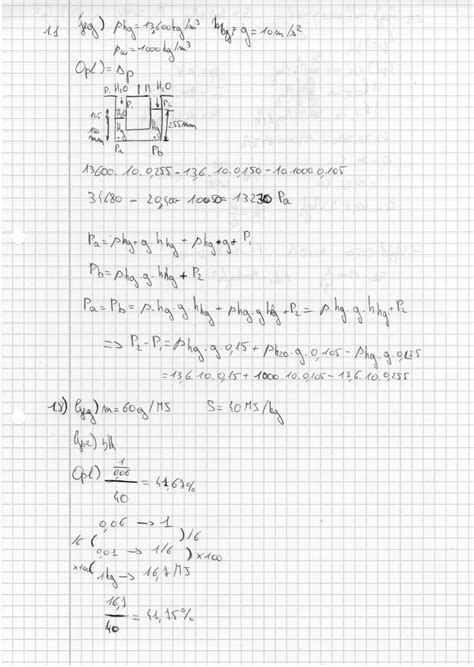 1.1 Geg) ρhg = 13,600kg/m³ g = 10m/s²
ρw = 1000kg/m³
Opl) = Δp
P1 H2O P1 H2O
P2
105
150 mm
255mm
Hg
Hg
Pa Pb
13600.10.0,255-13,6.10.0,150-10.1000.0,105
34680 - 20,400-1050= 13230 Pa
Pa = ρhg.g.hhg + ρhg.g + P1
Pb = ρhg.g.hhg + P2
Pa = Pb = ρ.hg.g hhg + ρhg.g hhg + P2 = ρhg.g.hhg + P2
=> P2-P1 = ρhg.g.0,15 + ρH2O.g.0.105 - ρhg.g.0,255
= 13,6.10.0,15 + 1000.10.0,105 - 13,6.10.0,255
1.8) Geg) m = 60g/MJ S = 40MJ/kg
Opl) 1/0,06 / 40 = 41,67%
0,06 → 1
/6 ( ) /6
0,01 → 1/6 ) ×100
×100 ( 1kg → 16,7MJ
16,7/40 = 41,75%